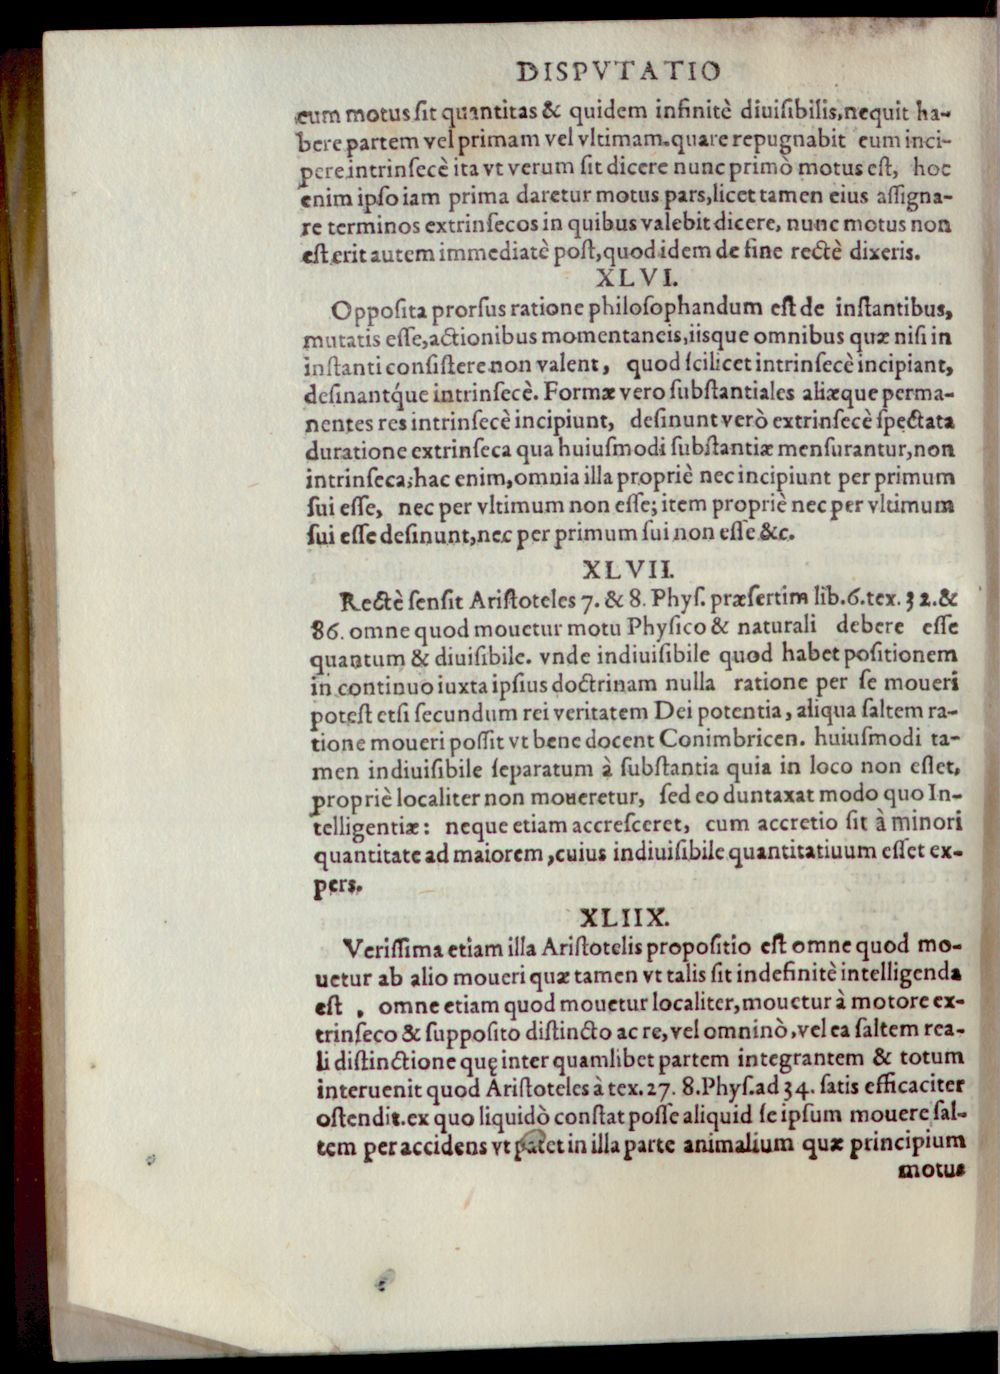 DISPVTATIO
cum motus sit quantitas & quidem infinitè diuisibilis, nequit ha-
bere partem vel primam vel vltimam. quare repugnabit eum inci-
pere intrinsecè ita vt verum sit dicere nunc primò motus est, hoc
enim ipso iam prima daretur motus pars, licet tamen eius assigna-
re terminos extrinsecos in quibus valebit dicere, nunc motus non
est erit autem immediatè post, quod idem de fine rectè dixeris.
XLVI.
Opposita prorsus ratione philosophandum est de instantibus,
mutatis esse, actionibus momentaneis, iisque omnibus quæ nisi in
instanti consistere non valent, quod scilicet intrinsecè incipiant,
desinantq́ue intrinsecè. Formæ vero substantiales aliæque perma-
nentes res intrinsecè incipiunt, desinunt verò extrinsecè spectata
duratione extrinseca qua huiusmodi substantiæ mensurantur, non
intrinseca; hac enim, omnia illa propriè nec incipiunt per primum
sui esse, nec per vltimum non esse; item propriè nec per vltimum
sui esse desinunt, nec per primum sui non esse &c.
XLVII.
Rectè sensit Aristoteles 7. & 8. Phys. præsertim lib. 6. tex. 32. &
86. omne quod mouetur motu Physico & naturali debere esse
quantum & diuisibile. vnde indiuisibile quod habet positionem
in continuo iuxta ipsius doctrinam nulla ratione per se moueri
potest etsi secundum rei veritatem Dei potentia, aliqua saltem ra-
tione moueri possit vt bene docent Conimbricen. huiusmodi ta-
men indiuisibile separatum à substantia quia in loco non esset,
propriè localiter non moueretur, sed eo duntaxat modo quo In-
telligentiæ: neque etiam accresceret, cum accretio sit à minori
quantitate ad maiorem, cuius indiuisibile quantitatiuum esset ex-
pers.
XLIIX.
Verissima etiam illa Aristotelis propositio est omne quod mo-
uetur ab alio moueri quæ tamen vt talis sit indefinitè intelligenda
est, omne etiam quod mouetur localiter, mouetur à motore ex-
trinseco & supposito distincto ac re, vel omninò, vel ea saltem rea-
li distinctione quę inter quamlibet partem integrantem & totum
interuenit quod Aristoteles à tex. 27. 8. Phys. ad 34. satis efficaciter
ostendit. ex quo liquidò constat posse aliquid se ipsum mouere sal-
tem per accidens vt patet in illa parte animalium quæ principium
motus